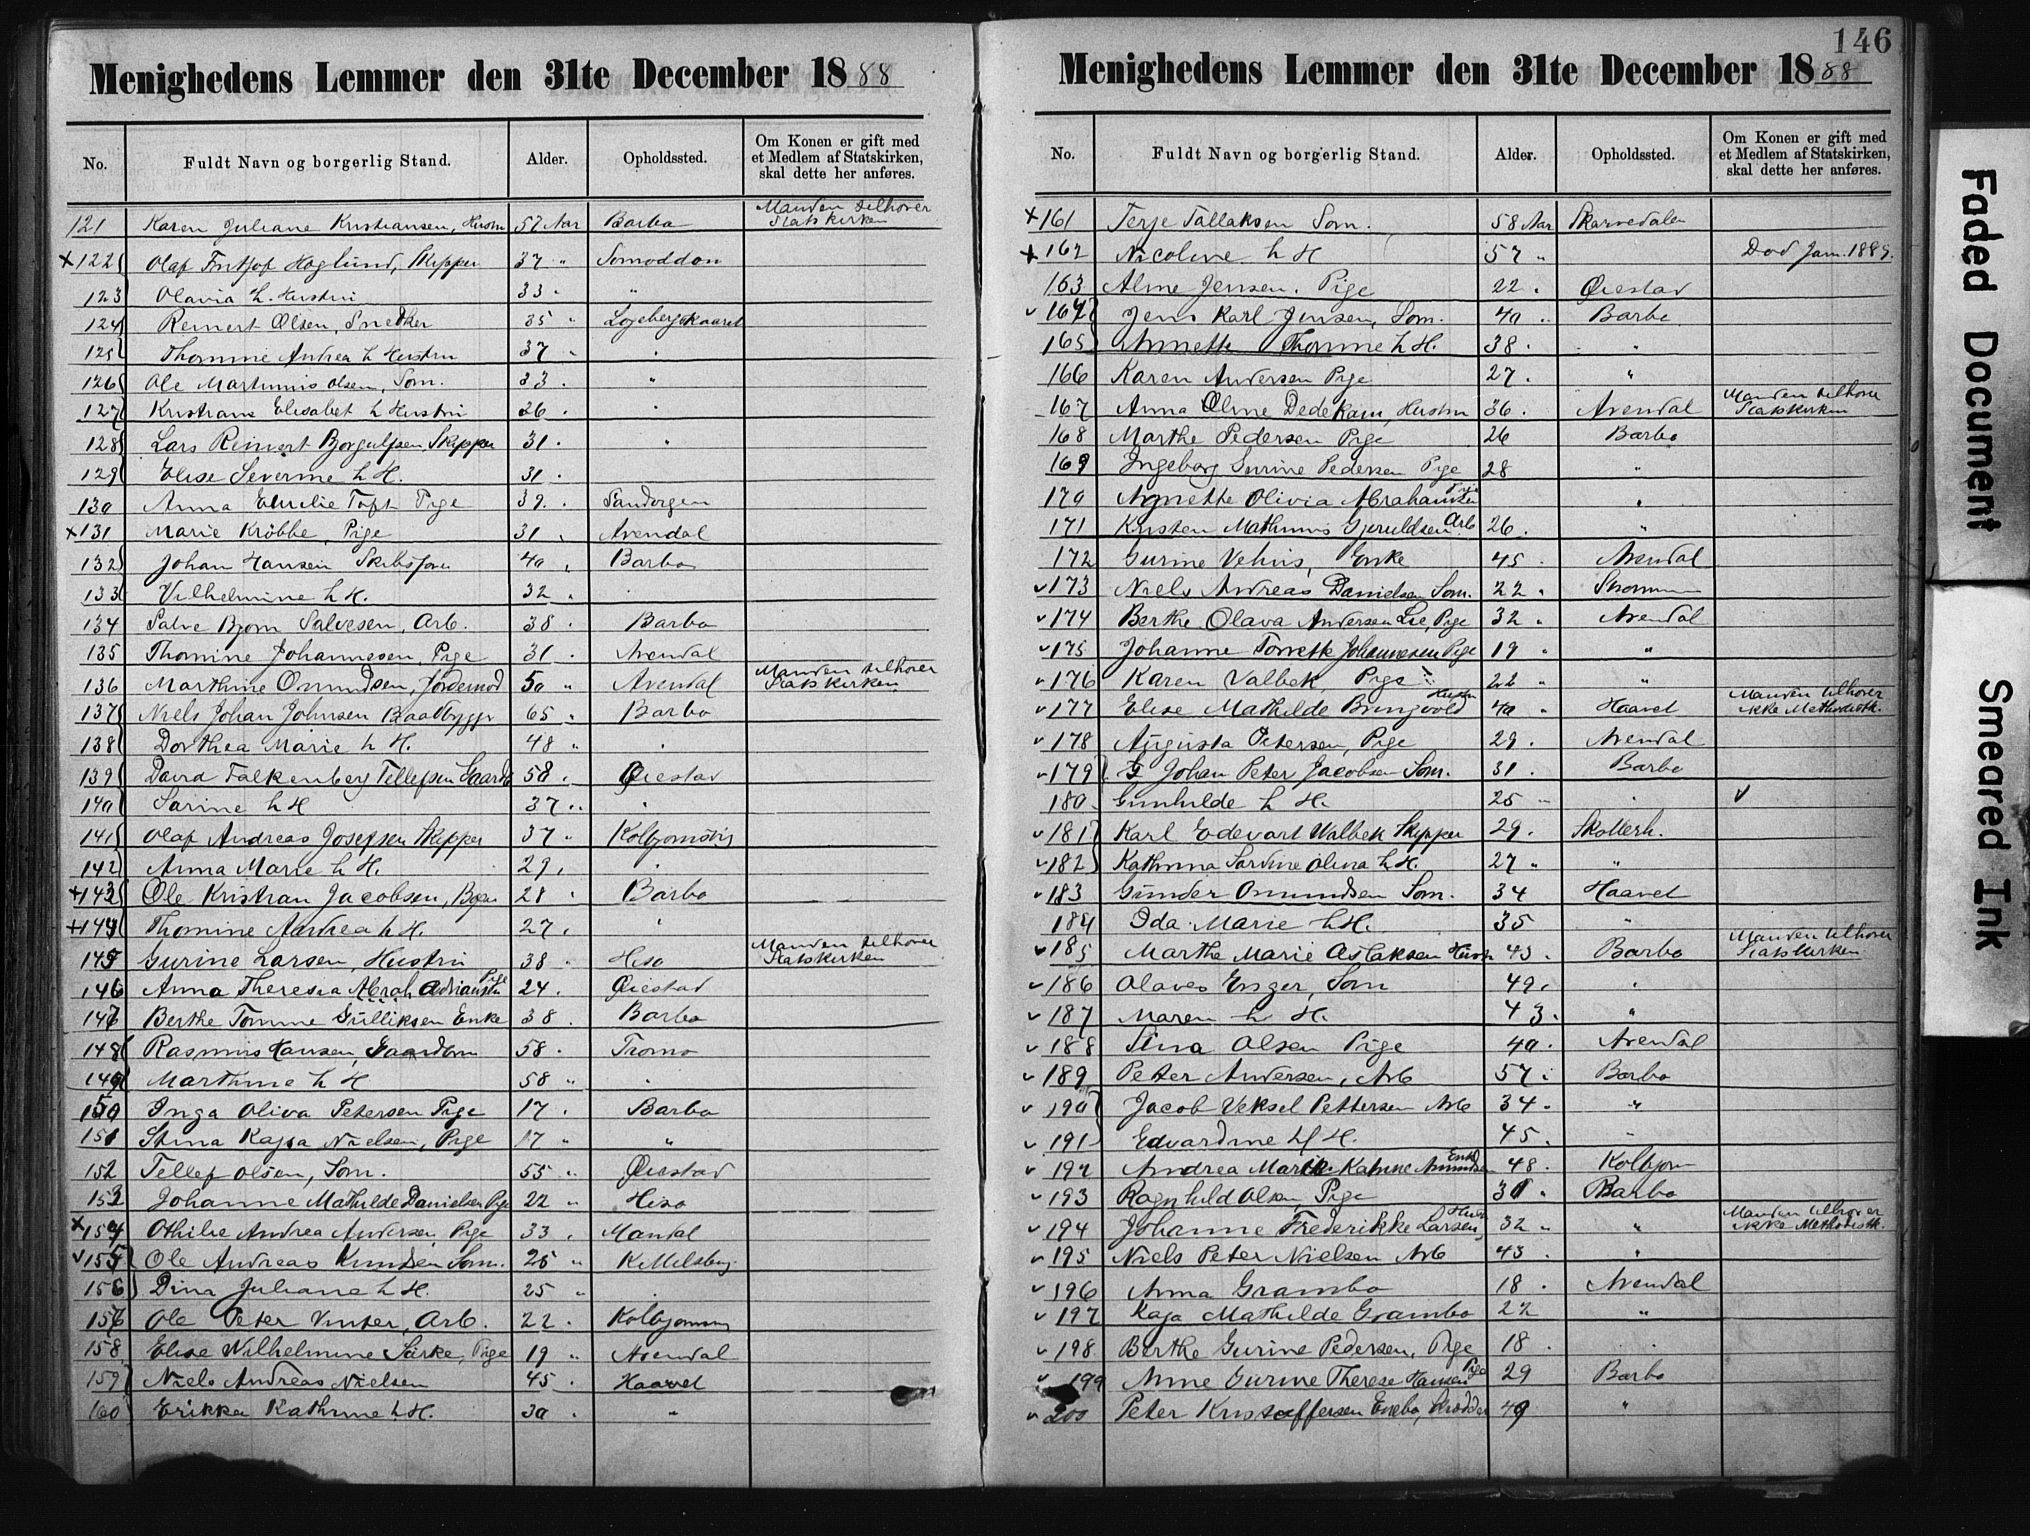 146
Menighedens Lemmer den 31te December 1888
No. Fuldt Navn og borgerlig Stand. Alder. Opholdssted. Om Konen er gift med et Medlem af Statskirken, skal dette her anføres.
121 Karen Juliane Kristiansen, Hustru 57 Aar Barbo Manden tilhører Statskirken
x122 Olaf Fritjof Hoglund, Skipper 37 " Somoddon
123 Olavia h. Hustru 33 . "
124 Reinert Olsen, Snedker 35 "
125 Thomine Andrea h Hustru 37 " .
126 Ole Martinius Olsen, Som. 33 . "
127 Kristiane Elisabet h Hustru 26 . .
128 Lars Reinert Borgulfsen Skipper 31 . "
129 Elise Severine h H. 31 .
130 Anna Emilie Toft Pige 39 .
x131 Marie Krøbbe, Pige 31 . Arendal
132 Johan Hansen 40 . Barbo
133 Vilhelmine h H. 32 .
134 Salve Bjorn Salvesen, Arb. 38 . Barbo
135 Thomine Johannesen, Pige 31 . Arendal
136 Marthine Omundsen, Jordemod 50 " Arendal Manden tilhører Statskirken
137 Niels Johan Johnsen Baadbygger 65 " Barbo
138 Dorthea Marie h H. 48 " .
139 David Falkenberg Tellefsen Gaardb 58 . Øiestad
140 Sarine h H 37 .. .
141 Olaf Andreas Josefsen Skipper 37 " Kolbjornsvig
142 Anna Marie h H. 29 . .
+143 Ole Kristian Jacobsen, 28 . Barbo
+144 Thomine Andrea h H. 27 . "
145 Gurine Larsen, Hustru 38 " Hiso Manden tilhører Statskirken
146 Anna Theresia Adriansen Pige 24 . Øiestad
147 Berthe Tomine Gulliksen Enke 38 . Barbo
148 Rasmus Hansen, Gaardm 58 . Tromo
149 Marthine h H 58 " .
150 Inga Oliva Petersen Pige 17 . Barbo
151 Stina Kajsa Nielsen, Pige 17 " "
152 Tellef Olsen, Som. 55 .. Øiestad
153 Johanne Mathilde Danielsen Pige 22 " Hiso
x154 Othilie Andrea Andersen Pige 33 . Mandal
v155 Ole Andreas Knudsen Som. 25 "
156 Dina Juliane h H. 25 " .
157 Ole Peter Vinter, Arb. 22 .
158 Elise Vilhelmine Särke, Pige 19 " Arendal
159 Niels Andreas Nielsen 45 . Haavet
160 Erikka Kathrine h H. 30 . "
Menighedens Lemmer den 31te December 1888
No. Fuldt Navn og borgerlig Stand. Alder. Opholdssted. Om Konen er gift med et Medlem af Statskirken, skal dette her anføres.
x161 Terje Tallaksen Som. 58 Aar Skarvedalen
x162 Nicoline h H 57 " Dod Jan. 1889.
163 Aline Jensen. Pige 22 . Øiestad
v164 Jens Karl Jensen, Som. 40 " Barbo
165 Annette Thomine h H. 38 . "
166 Karen Andersen Pige 27 . "
167 Anna Oline Dedekam, Hustru 36 . Arendal Manden tilhører Statskirken
168 Marthe Pedersen Pige 26 Barbo
169 Ingeborg Gurine Pedersen Pige 28 "
170 Agnette Olivia Abrahamsen Pige .
171 Kristen Mathinius Gjeruldsen Arb. 26 . "
172 Gurine Vehus, Enke 45 . Arendal
v173 Niels Andreas Danielsen Som. 22 .
v174 Berthe Olava Andersen Lie, Pige 32 " Arendal
v175 Johanne Torrette Johannesen Pige 19 " "
v176 Karen Valbek, Pige 22 " "
v177 Elise Mathilde Bringvold Hustru 40 . Haavet Manden tilhører ikke Methodistk.
v178 Augusta Petersen, Pige 29 . Arendal
v179 Johan Peter Jacobsen Som. 31 . Barbo
180 Gunhilde h H. 25 " . v
v181 Karl Edevart Walbek Skipper 29 .
v182 Kathrina Sardine Olina h H. 27 " "
v183 Gunder Omundsen Som. 34 Haavet
184 Ida Marie h H. 35 "
v185 Marthe Marie Aslaksen Hustr 43 . Barbo Manden tilhører Statskirken
v186 Olaves Enger, Som 49 . .
v187 Maren h H. 43 . "
v188 Stina Olsen Pige 40 . Arendal
v189 Peter Andersen, Arb 57 . Barbo
v190 Jacob Veksel Pettersen Arb 34 . "
v191 Edvardine h H. 45 . ..
v192 Andrea Marie Katrine Amundsen Enke 48 . Kolbjorn
v193 Ragnhild Olsen, Pige 31 . Barbo
v194 Johanne Frederikke Larsen, Hustr 32 " " Manden tilhører ikke Methodistk.
v195 Niels Peter Nielsen Arb 43 . "
v196 Anna Grambo 18 . Arendal
v197 Kaja Mathilde Grambo 22 "
v198 Berthe Gurine Pedersen, Pige 18 . ..
v199 Anne Gurine Therese Hansen Pige 29 Barbo
v200 Peter Kristoffersen Enebo, Skrædder 49 "
Faded Document
Smeared Ink